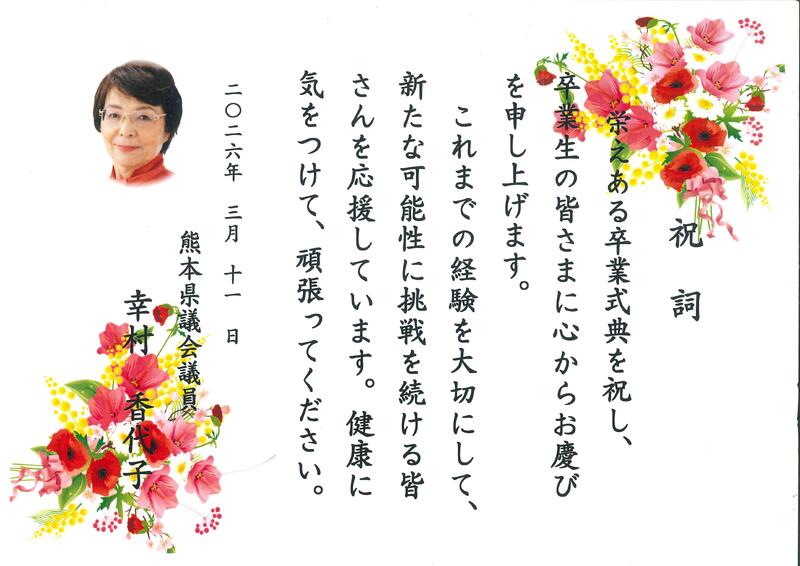 祝詞
栄えある卒業式典を祝し、
卒業生の皆さまに心からお慶び
を申し上げます。
これまでの経験を大切にして、
新たな可能性に挑戦を続ける皆
さんを応援しています。健康に
気をつけて、頑張ってください。
二〇二六年 三月 十一 日
熊本県議会議員
幸村 香代子